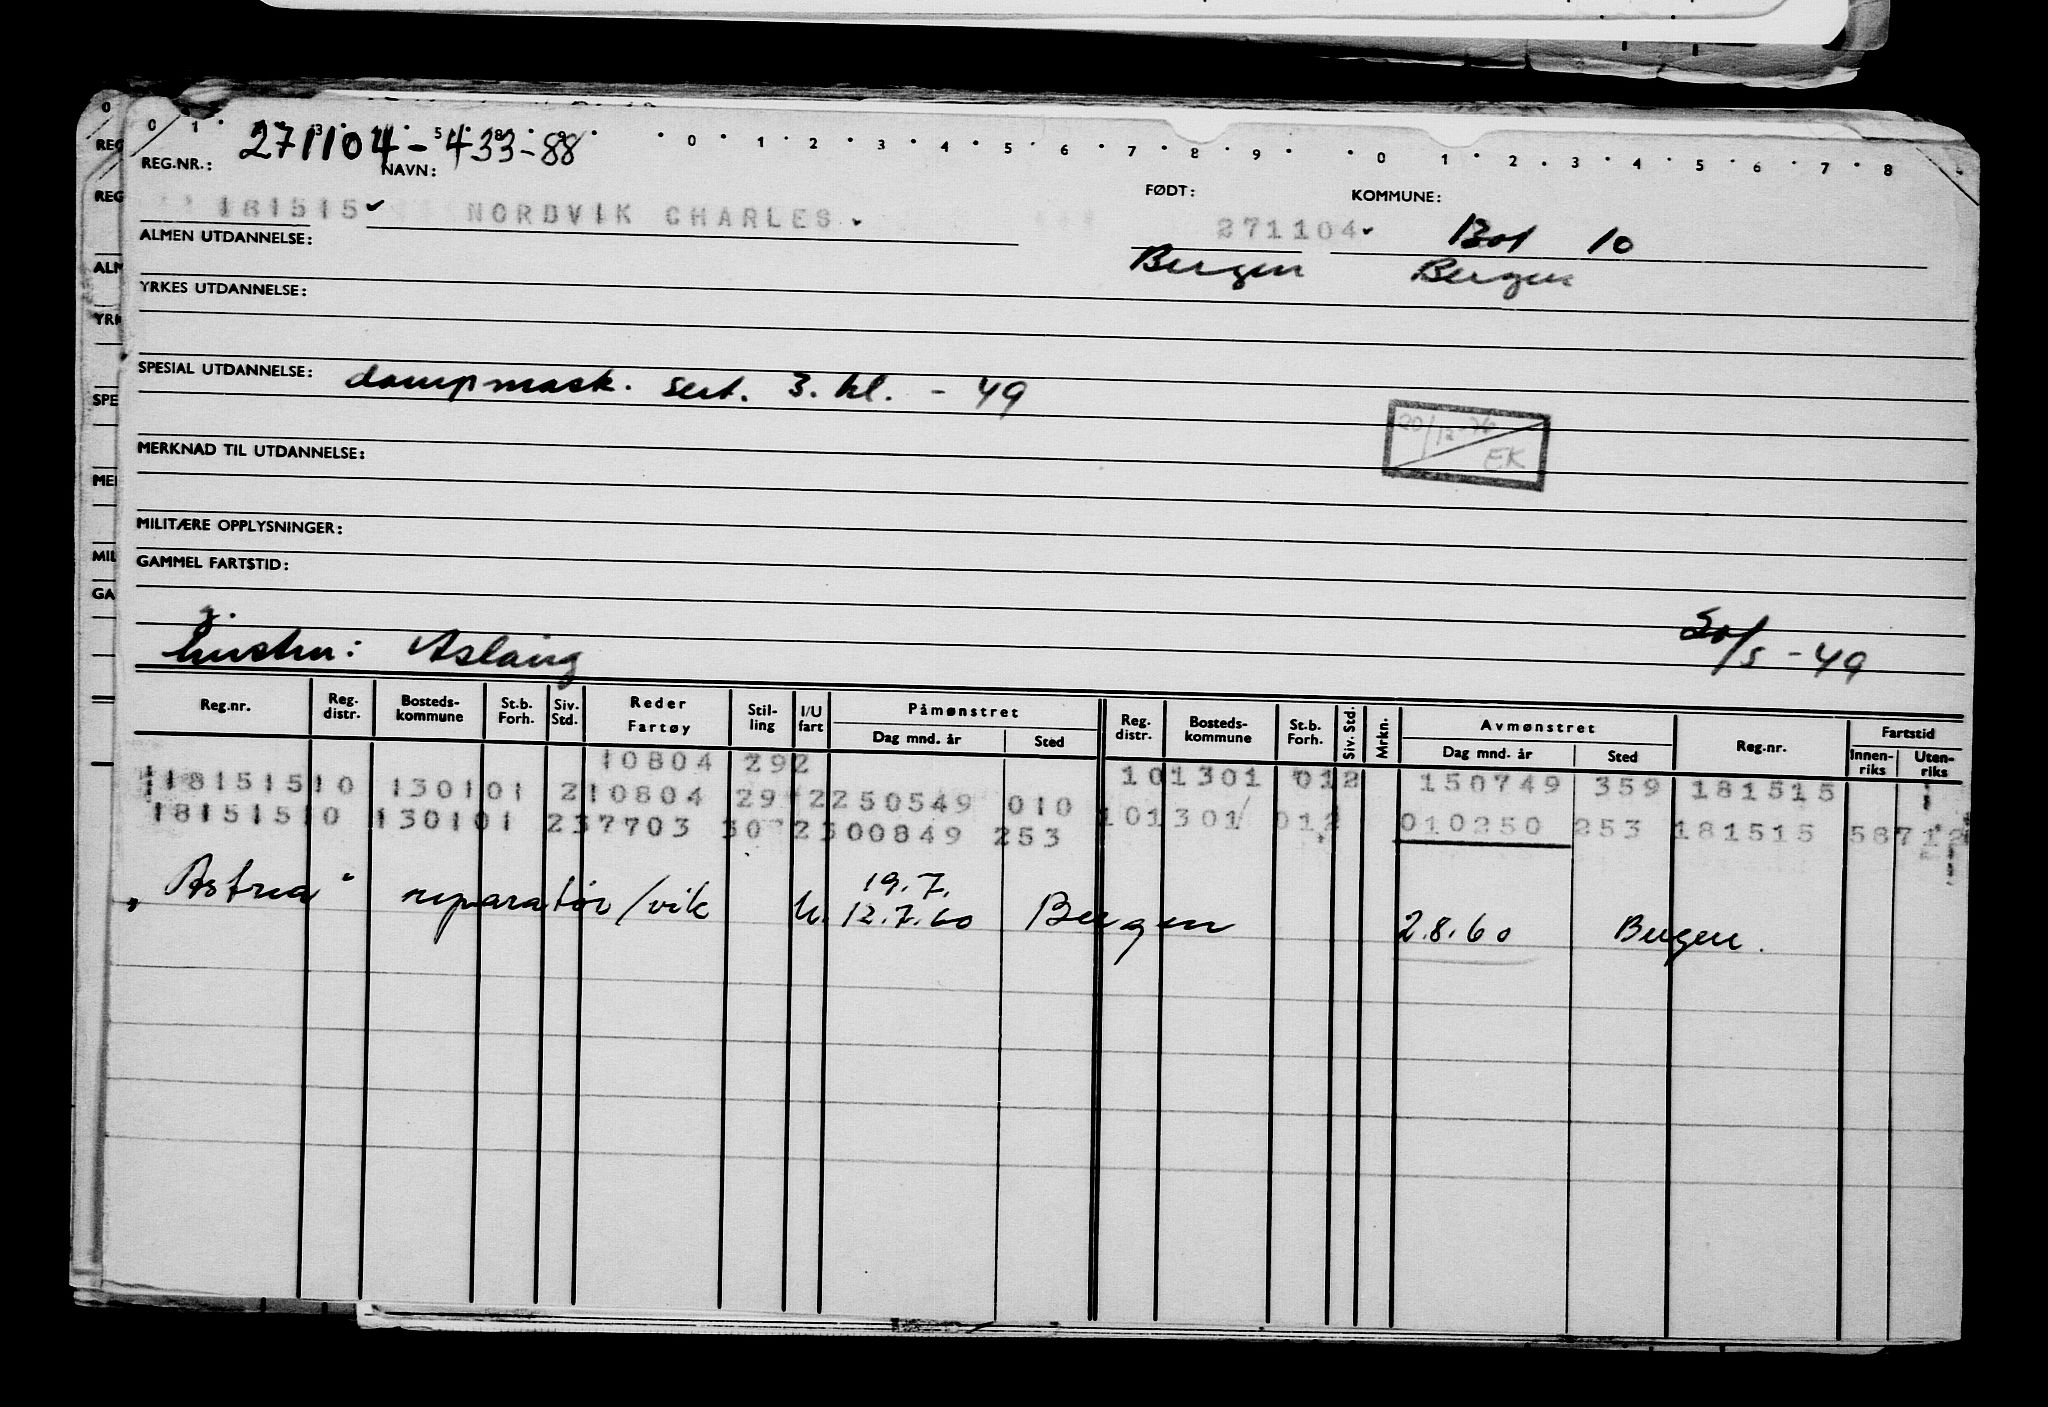 271104-433-88
REG.NR.: NAVN: FØDT: KOMMUNE:
181515 NORDVIK CHARLES. 271104 Bot 10
ALMEN UTDANNELSE: Bergen Bergen
YRKES UTDANNELSE:
SPESIAL UTDANNELSE: dampmask. sert. 3. kl. - 49
20/12-76 EK
MERKNAD TIL UTDANNELSE:
MILITÆRE OPPLYSNINGER:
GAMMEL FARTSTID:
g.
hustru: Aslaug 20/5 - 49
Reg.nr. Reg. distr. Bosteds-kommune St.b. Forh. Siv. Std. Reder Fartøy Stil-ling I/U fart Påmønstret Dag mnd. år Sted Reg. distr. Bosteds-kommune St.b. Forh. Siv. Std. Mrkn. Avmønstret Dag mnd. år Sted Reg.nr. Fartstid Innen-riks Uten-riks
10804 292
181515 10 130101 210804 29 2250549 010 101301 012 150749 359 181515
181515 10 130101 237703 30 2300849 253 101301 012 010250 253 181515 58712
"Astrea" reparatør/vik U. 19.7. 12.7.60 Bergen 2.8.60 Bergen.